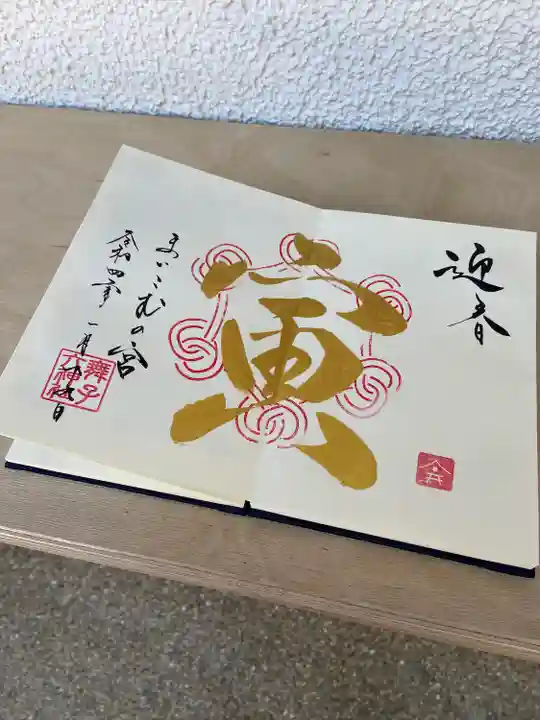 迎春
寅
まいこむの宮
令和四年一月
舞子
八幡神社